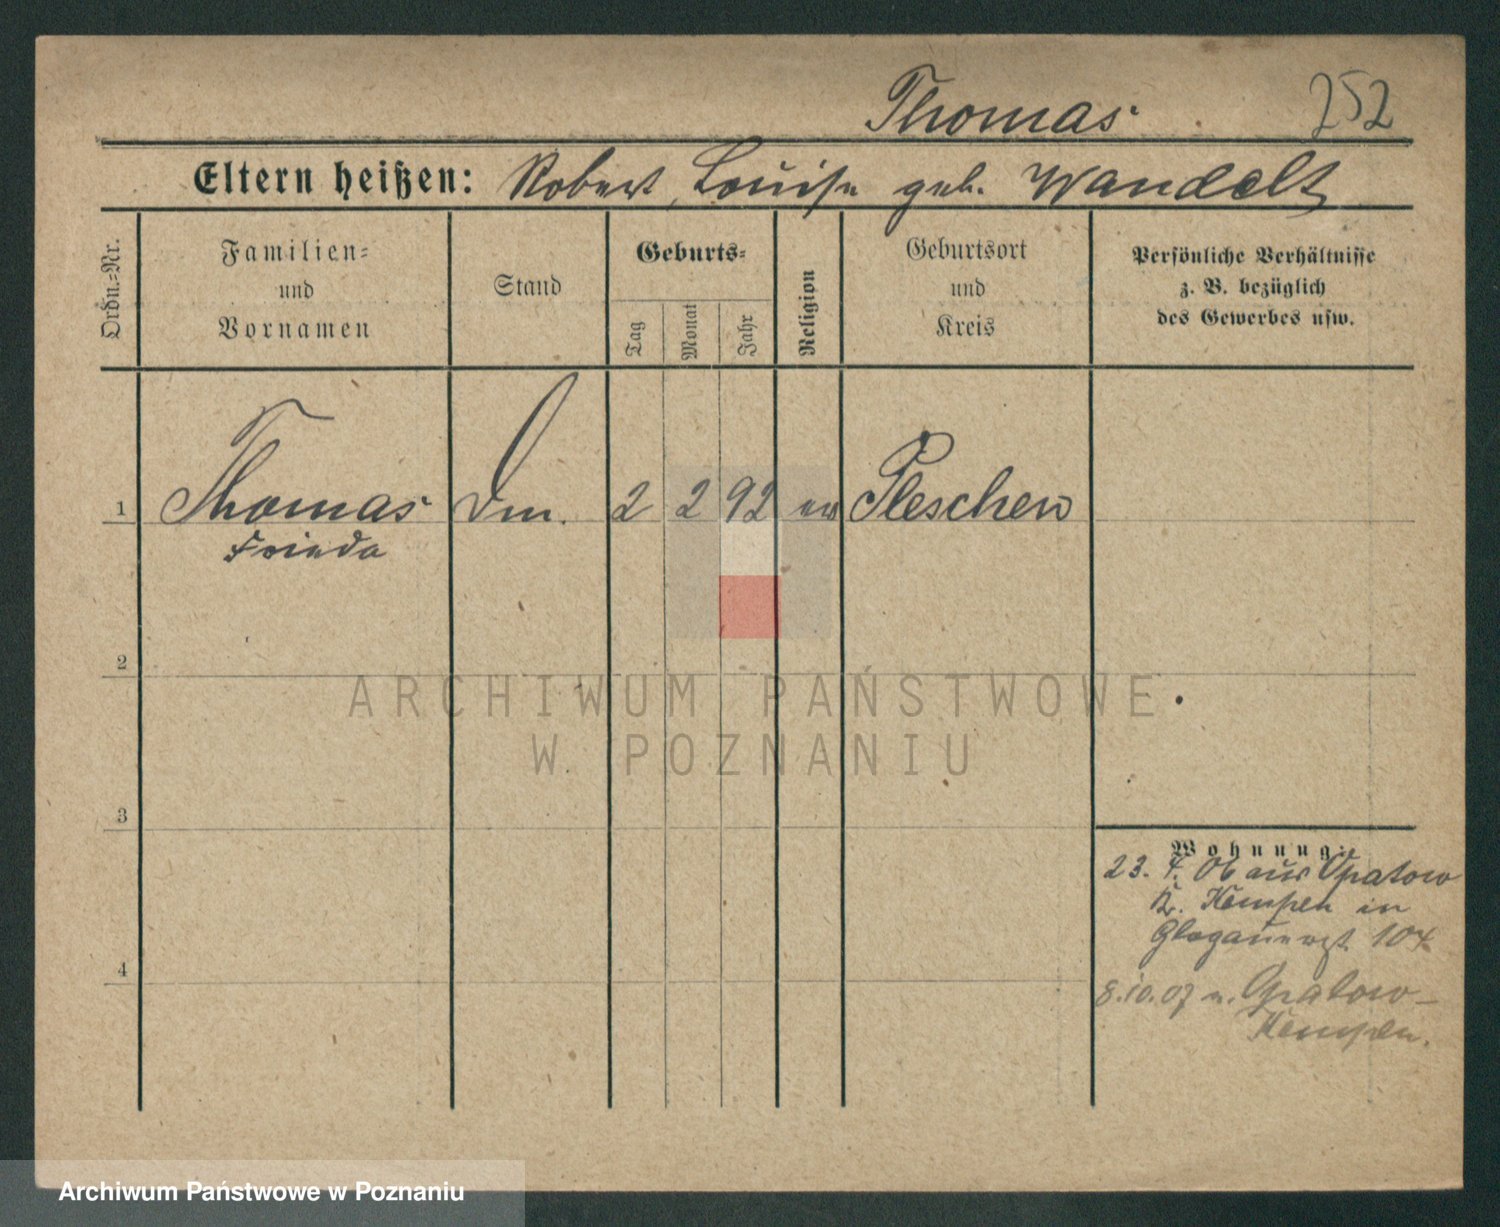 Thomas 252
Eltern heißen: Robert, Louise geb. Wandelt
Ordn.=Nr.
Familien=
und
Vornamen
Stand
Geburts=
Tag
Monat
Jahr
Religion
Geburtsort
und
Kreis
Persönliche Verhältnisse
z. B. bezüglich
des Gewerbes usw.
1 Thomas 2 2 92 ev Pleschen
Frieda
2
3
4
Wohnung:
23. 4. 06 aus Opatow
Kr. Kempen in
Glogauerst. 104
8.10.07 n. Opatow-
Kempen.
ARCHIWUM PAŃSTWOWE
W POZNANIU
Archiwum Państwowe w Poznaniu